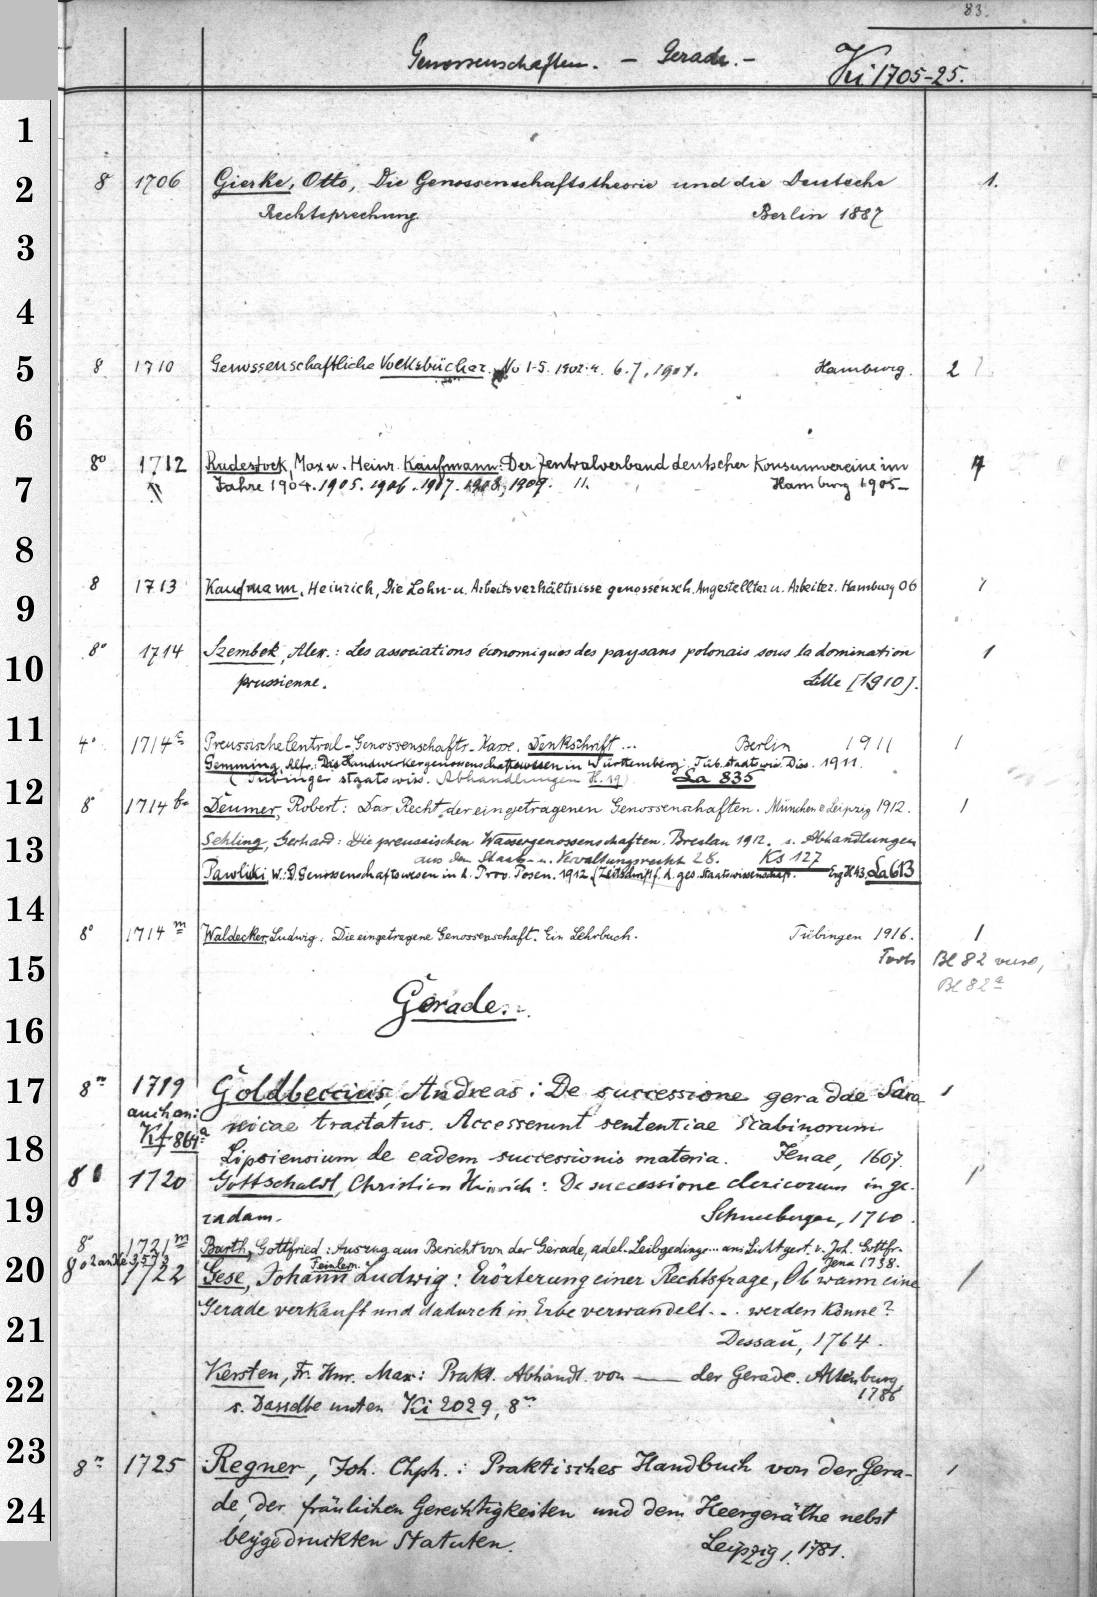 83.
Genossenschaften. - Gerade. -
Ki 1705-25.
1
2
3
4
5
6
7
8
9
10
11
12
13
14
15
16
17
18
19
20
21
22
23
24
8 1706 Gierke, Otto, Die Genossenschaftstheorie und die Deutsche 1.
Rechtsprechung Berlin 1887
8 1710 Genossenschaftliche Volksbücher. No 1-5. 1902.4. 6.7, 1904. Hamburg. 2
8o 1712 Rudestock, Max u. Heinr. Kaufmann: Der Zentralverband deutscher Konsumvereine im 7
Jahre 1904. 1905. 1906. 1907. 1908, 1909. 11. Hamburg 1905-
8 1713 Kaufmann, Heinrich, Die Lohn- u. Arbeitsverhältnisse genossensch. Angestellter u. Arbeiter. Hamburg 06 1
8o 1714 Szembek, Alex.: Les associations économiques des paysans polonais sous la domination 1
prussienne. Lille [1910].
4o 1714 c Preussische Central-Genossenschafts-Kasse. Denkschrift ... Berlin 1911 1
Gemming, Alfr.: Das Handwerkergenossenschaftswesen in Württemberg. Tüb. staatswiss. Diss. 1911.
(Tübinger staatswiss. Abhandlungen H. 19) La 835
8o 1714 Deumer, Robert: Das Recht der eingetragenen Genossenschaften. München & Leipzig 1912. 1
Sehling, Gerhard: Die preussischen Wassergenossenschaften. Breslau 1912. s. Abhandlungen
aus dem Staats- u. Verwaltungsrecht 28. Ks 127
Pawlicki W.: D. Genossenschaftswesen in d. Prov. Posen. 1912. (Zeitschrift f. d. ges. Staatswissenschaft. Erg H 43. La 613
8o 1714 m Waldecker, Ludwig: Die eingetragene Genossenschaft. Ein Lehrbuch. Tübingen 1916. 1
Forts Bl 82 verso,
Bl 82a
Gerade.
8o 1719 Goldbeccius, Andreas: De successione geradae Saxo 1
auch an: nicae tractatus. Accesserunt sententiae scabinorum
Kf 864a
Lipsiensium de eadem successionis materia. Jenae, 1607.
8o 1720 Gottschaldt, Christian Heinrich: De successione clericorum in ge- 1
radam. Schneebergae, 1710.
8o 1721 m Barth, Gottfried: Auszug aus Bericht von der Gerade, adel. Leibgedinge ... ans Licht gest. v. Joh. Gottfr.
2 an Ke 3573 Feinlern. Jena 1738.
8o 1722 Gese, Johann Ludwig: Erörterung einer Rechtsfrage, Ob wann eine 1
Gerade verkauft und dadurch in Erbe verwandelt ... werden könne?
Dessau, 1764.
Kersten, Fr. Hnr. Max: Prakt. Abhandl. von — der Gerade. Altenburg
1786
s. Dasselbe unten Ki 2029, 8o
8o 1725 Regner, Joh. Chph.: Praktisches Handbuch von der Gera- 1
de, der fräulichen Gerechtigkeiten und dem Heergeräthe nebst
beygedruckten Statuten. Leipzig, 1781.